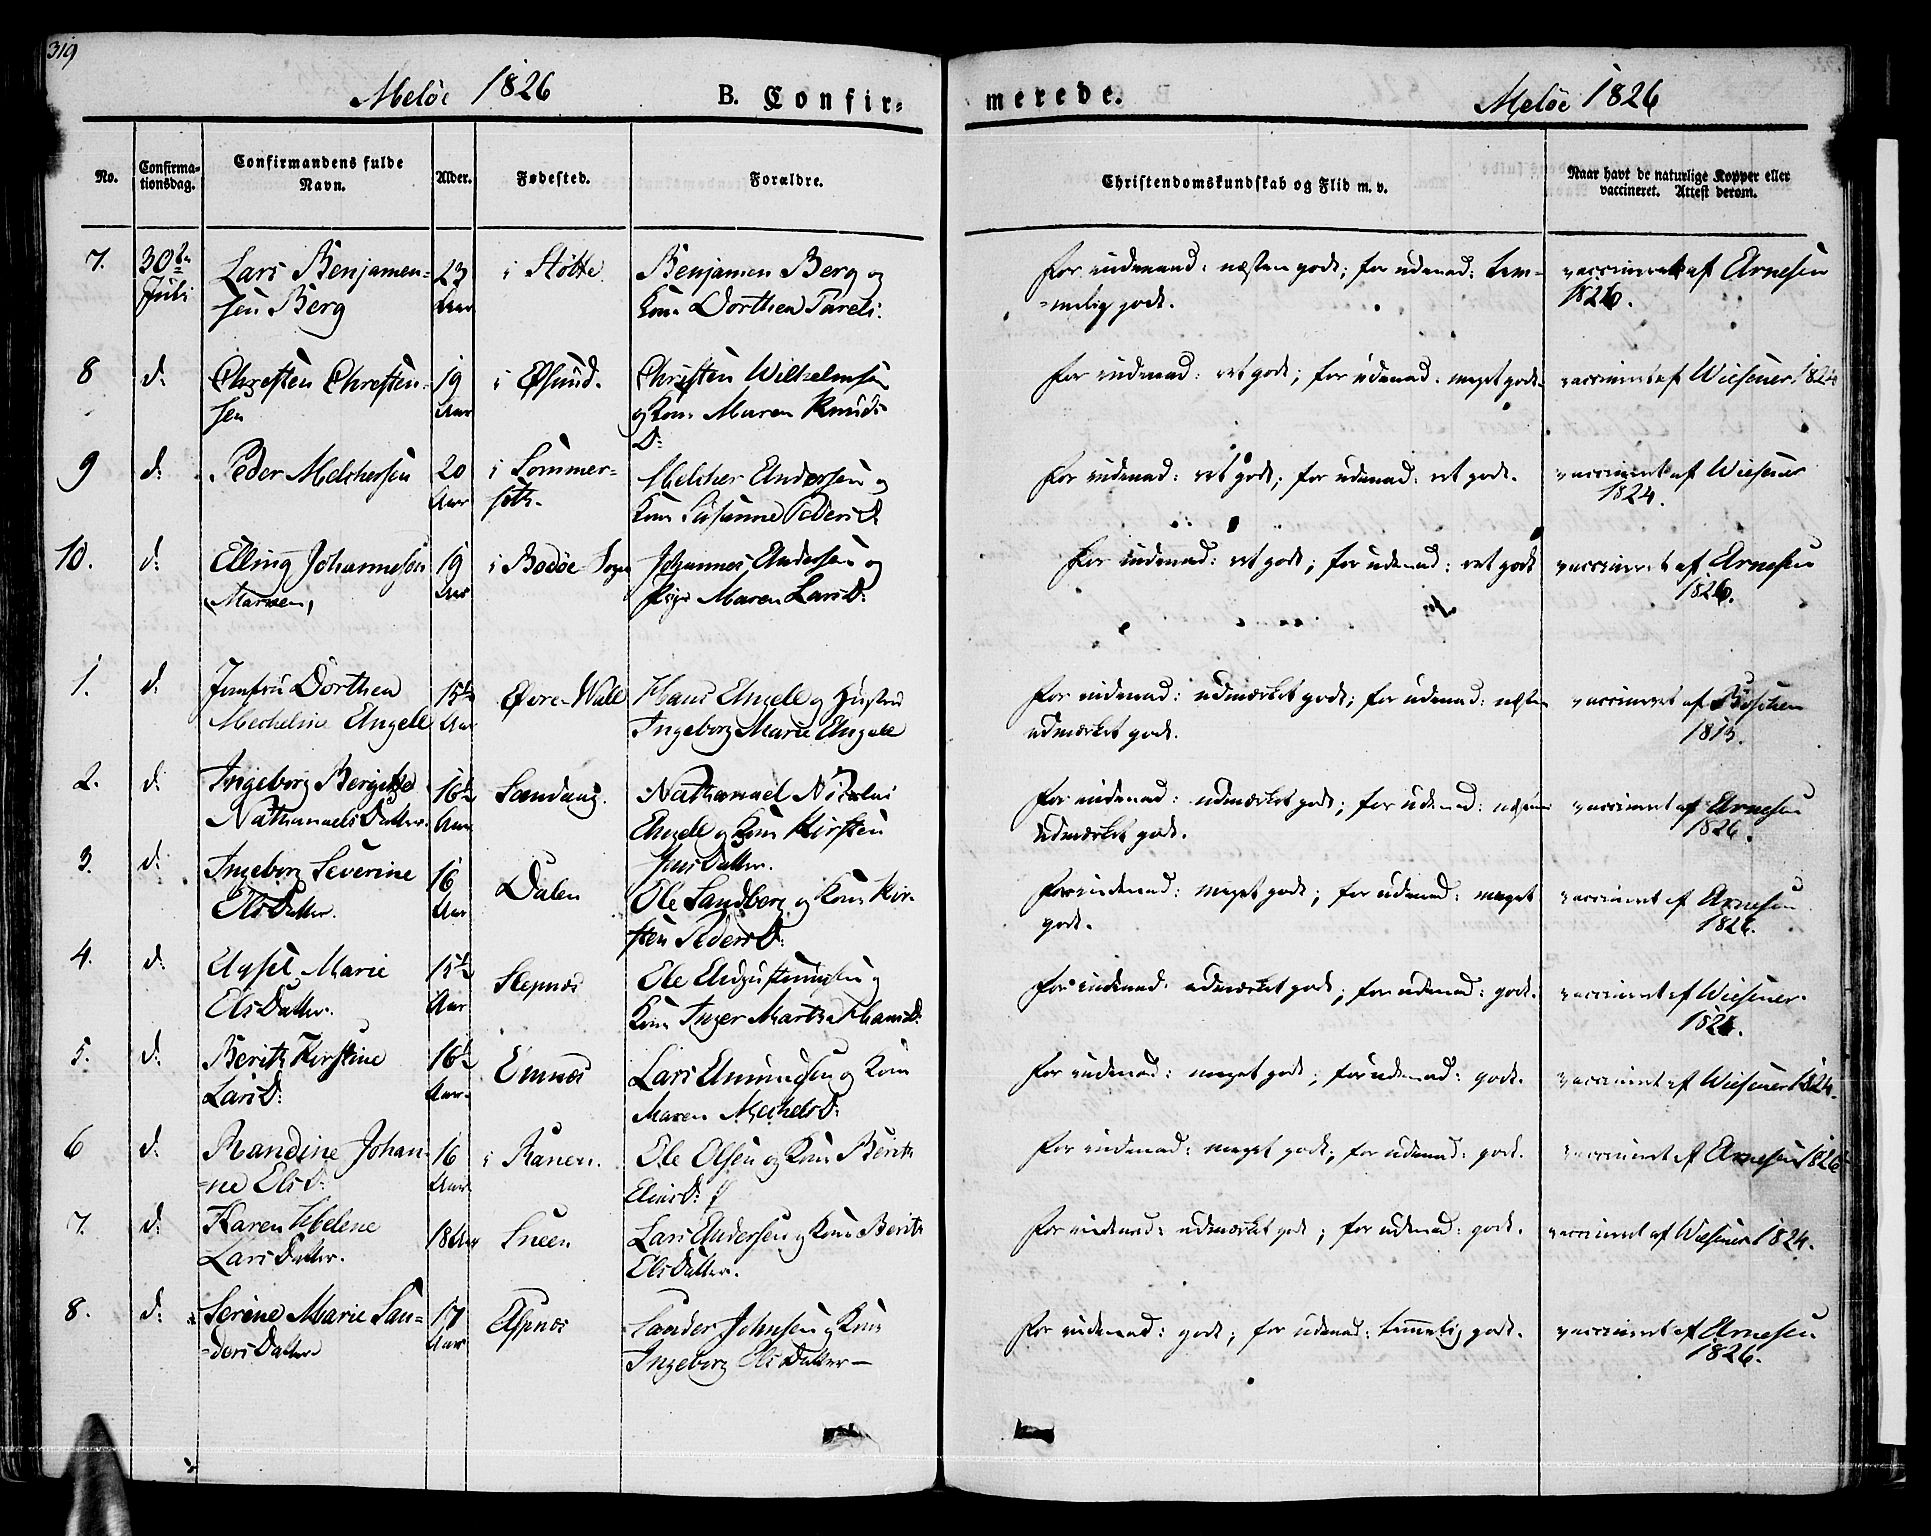 319
Meløe 1826
B. Confir=
merede.
Meløe 1826
No.
Confirma-
tionsdag.
Confirmandens fulde
Navn.
Alder.
Fødested.
Forældre.
Christendomskundskab og Flid m. v.
Naar havt de naturlige Kopper eller
vaccineret. Attest derom.
7. 30te Juli Lars Benjamen= 23 i Støtte Benjamen Berg og For indenad: næsten godt; for udenad: tem- vaccineret af Arnesen
sen Berg Aar Kone Dorthea =melig godt. 1826.
8 d. Chresten Chresten- 19 i Øsund. Christen Wilhelmsen For indenad: ret godt; for udenad: meget godt. vaccineret af Wiesener 1824
sen Aar og Kone Maren Knuds
D:
9 d. Peder Melchersen 20 i Sommer= Melcher Andersen og For indenad: ret godt; for udenad: ret godt. vaccineret af Wiesener
Aar seth. Kone Susanne Peders D. 1824.
10. d. Elling Johannesen 19 i Bodøe Sogn Johannes Andersen og For indenad: ret godt; for udenad: ret godt vaccineret af Arnesen
Aar Pige Maren Lars D: 1826.
1. d. Jomfru Dorthea 15½ Øvre-Wall Hans Angell og Hustru For indenad: udmærket godt; for udenad: næsten vaccineret af
Mecheline Angell Aar Ingeborg Marie Angell udmærket godt. 1815.
2. d. Ingeborg Bergitte 16½ Sandaag. Nathanael Nicolai For indenad: udmærket godt; for udenad: næsten vaccineret af Arnesen
Nathanaels Datter. Aar Angell og Kone Kirsten udmærket godt. 1826.
Jens Datter.
3. d. Ingeborg Severine 16 Dalen Ole Sandberg og Kone Kir- For indenad: meget godt; for udenad: meget vaccineret af Arnesen
Ols Datter. Aar sten Peders D: godt. 1826.
4. d. Axsel Marie 15½ Stepnæs Ole Augustinusen og For indenad: udmærket godt; for udenad: godt. vaccineret af Wiesener.
Ols Datter. Aar Kone Inger Martha Hans D: 1824.
5. d. Berith Kirstine 16½ Emnæs Lars Amundsen og Kone For indenad: meget godt; for udenad: godt. vaccineret af Wiesener 1824.
Lars D: Aar. Maren Mechels D:
6 d. Randine Johan- 16 i Ranen. Ole Olsen og Kone Berith For indenad: meget godt; for udenad: godt. vaccineret af Arnesen 1826
=ne Ols D: Aar. Elias D:
7. d. Karen Helene 18 Aar Sneen Lars Andersen og Kone Berith For indenad: udmærket godt; for udenad: godt. vaccineret af Wiesener 1824.
Lars Datter. Ols Datter.
8. d. Serine Marie San= 17 Espnæs Sander Johnsen og Kone For indenad: godt; for udenad: temmelig godt. vaccineret af Arnesen
=ders Datter Aar Ingeborg Ols Datter— 1826.